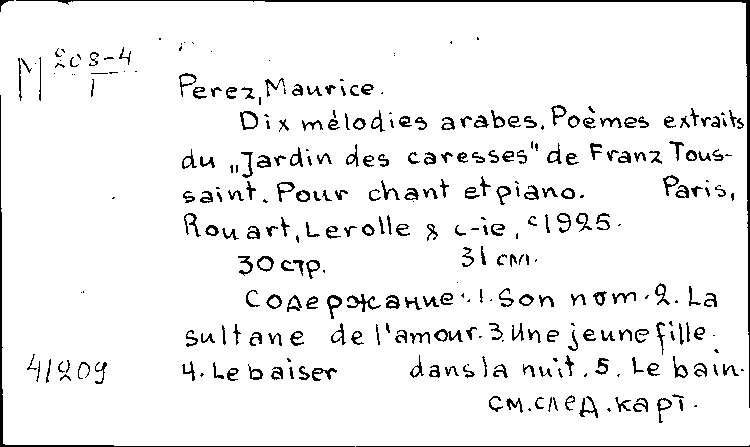 M 208-4
1
Perez, Maurice.
Dix mélodies arabes. Poèmes extraits
du „Jardin des caresses" de Franz Tous-
saint. Pour chant et piano. Paris,
Rouart, Lerolle & c-ie, c1925.
30 стр. 31 см.
Содержание: 1. Son nom. 2. La
sultane de l'amour. 3. Une jeune fille.
4. Le baiser dans la nuit. 5. Le bain.
см. след. карт.
41209